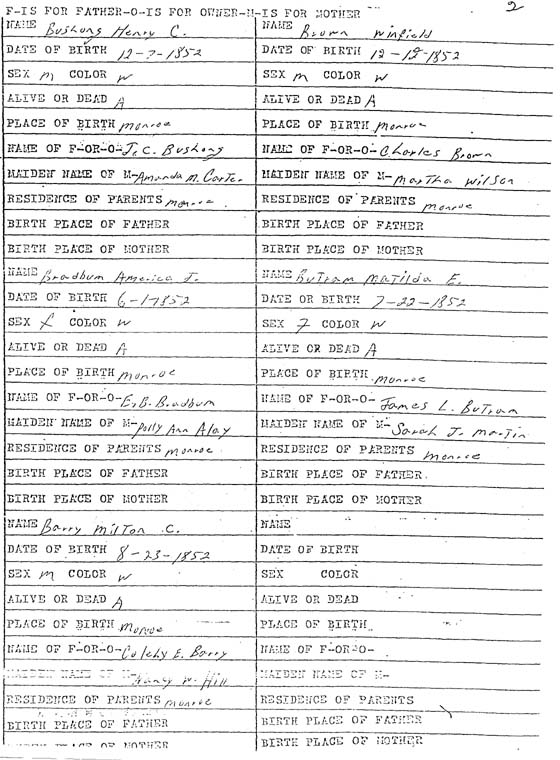 F-IS FOR FATHER-O-IS FOR OWNER-M-IS FOR MOTHER
2
NAME Bushong Henry C.
DATE OF BIRTH 12-?-1852
SEX m COLOR W
ALIVE OR DEAD A
PLACE OF BIRTH monroe
NAME OF F-OR-O-J.C. Bushong
MAIDEN NAME OF M-Amanda M. Carter
RESIDENCE OF PARENTS monroe
BIRTH PLACE OF FATHER
BIRTH PLACE OF MOTHER
NAME Bradburn America J.
DATE OF BIRTH 6-1-1852
SEX f COLOR W
ALIVE OR DEAD A
PLACE OF BIRTH monroe
NAME OF F-OR-O-E.B. Bradburn
MAIDEN NAME OF M-Polly Ann Alay
RESIDENCE OF PARENTS monroe
BIRTH PLACE OF FATHER
BIRTH PLACE OF MOTHER
NAME Barry Milton C.
DATE OF BIRTH 8-23-1852
SEX m COLOR W
ALIVE OR DEAD A
PLACE OF BIRTH monroe
NAME OF F-OR-O-Culeby E. Barry
MAIDEN NAME OF M-Nancy W. Hill
RESIDENCE OF PARENTS monroe
BIRTH PLACE OF FATHER
BIRTH PLACE OF MOTHER
NAME Brown Winfield
DATE OF BIRTH 12-12-1852
SEX m COLOR W
ALIVE OR DEAD A
PLACE OF BIRTH monroe
NAME OF F-OR-O-Charles Brown
MAIDEN NAME OF M-Martha Wilson
RESIDENCE OF PARENTS monroe
BIRTH PLACE OF FATHER
BIRTH PLACE OF MOTHER
NAME Butram Matilda E.
DATE OR BIRTH 7-22-1852
SEX 7 COLOR W
ALIVE OR DEAD A
PLACE OF BIRTH monroe
NAME OF F-OR-O-James L. Butram
MAIDEN NAME OF M-Sarah J. Martin
RESIDENCE OF PARENTS monroe
BIRTH PLACE OF FATHER
BIRTH PLACE OF MOTHER
NAME
DATE OF BIRTH
SEX COLOR
ALIVE OR DEAD
PLACE OF BIRTH
NAME OF F-OR-O-
MAIDEN NAME OF M-
RESIDENCE OF PARENTS
BIRTH PLACE OF FATHER
BIRTH PLACE OF MOTHER